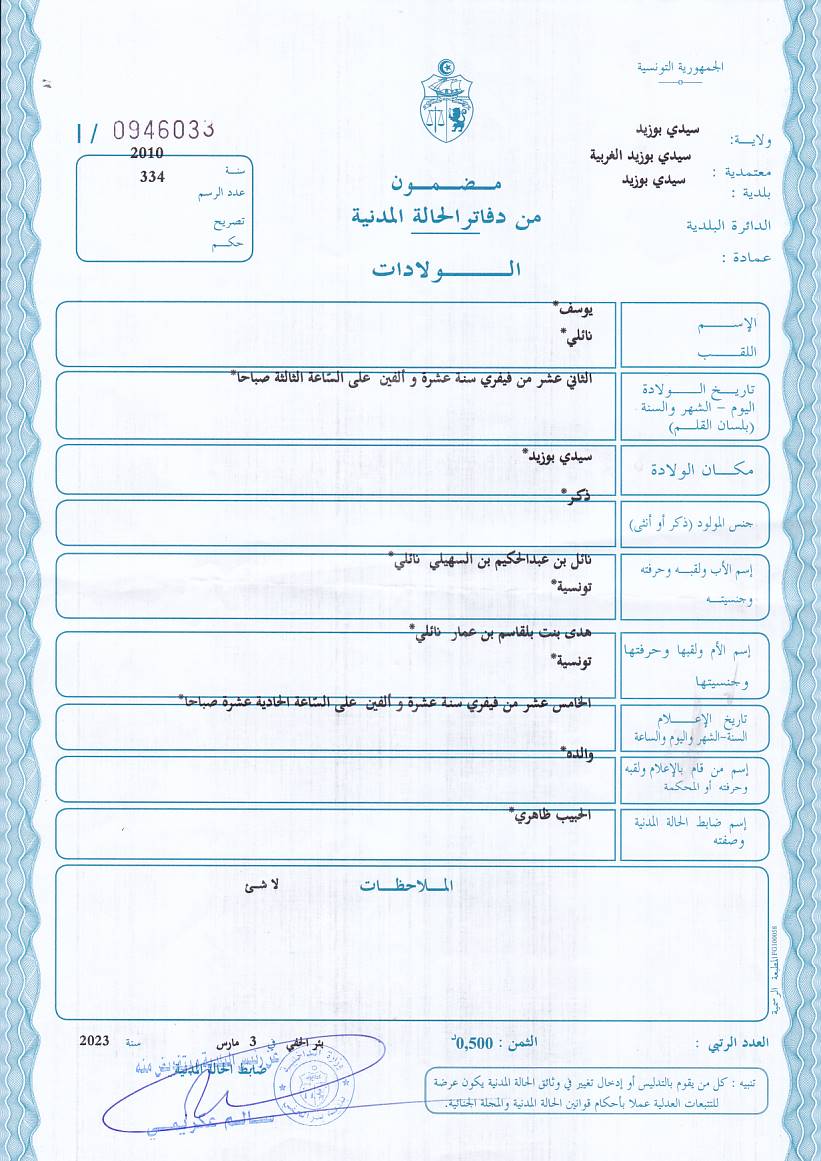 الجمهورية التونسية
ولايـــة: سيدي بوزيد
معتمدية : سيدي بوزيد الغربية
بلدية : سيدي بوزيد
الدائرة البلدية
عمادة :
I / 0946033
سنـة 2010
عدد الرسم 334
تصريح
حكـم
مـضـمـون
من دفاتر الحالة المدنية
الـــــولادات
الإســـــم يوسف*
اللقـــب نائلي*
تاريـــخ الـــــولادة الثاني عشر من فيفري سنة عشرة و ألفين على السّاعة الثالثة صباحا*
اليوم – الشهر والسنة
(بلسان القلـــم)
مكـــان الولادة سيدي بوزيد*
جنس المولود (ذكر أو أنثى) ذكر*
إسم الأب ولقبـــه وحرفته نائل بن عبدالحكيم بن السهيلي نائلي*
وجنسيتـــه تونسية*
إسم الأم ولقبها وحرفتها هدى بنت بلقاسم بن عمار نائلي*
وجنسيتها تونسية*
تاريخ الإعـــــلام الخامس عشر من فيفري سنة عشرة و ألفين على السّاعة الحادية عشرة صباحا*
السنة-الشهر واليوم والساعة
إسم من قام بالإعلام ولقبه والده*
وحرفته أو المحكمة
إسم ضابط الحالة المدنية الحبيب ظاهري*
وصفته
الملاحظـــات لا شئ
المطبعة الرسمية FG100058
العدد الرتبي : الثمن : 0,500د بئر الحفي في 3 مارس سنة 2023
ضابط الحالة المدنية
تنبيه : كل من يقوم بالتدليس أو إدخال تغيير في وثائق الحالة المدنية يكون عرضة
للتتبعات العدلية عملا بأحكام قوانين الحالة المدنية والمجلة الجنائية.
سـالـم عكريمـي